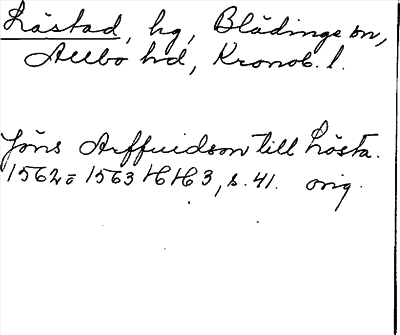 Låstad, hg, Blädinge sn,
Allbo hd, Kronob. l.
Jöns Arffuidson till Låsta.
1562 o 1563 HH 3, s. 41. orig.